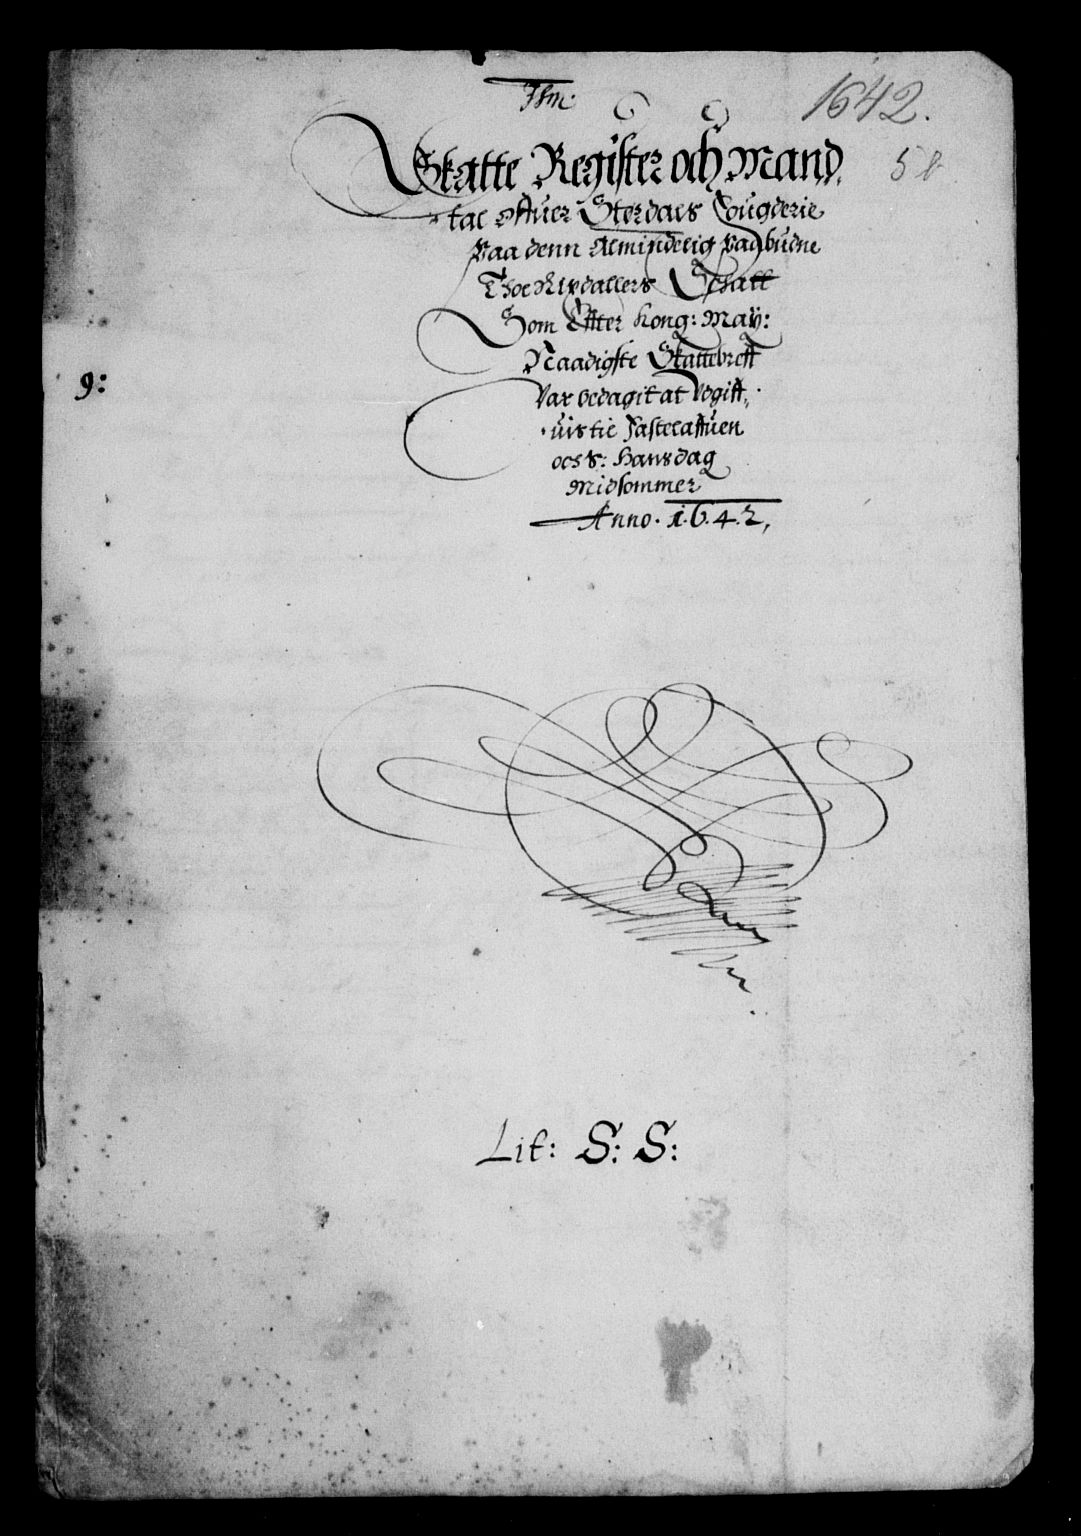 1642.
58
Skatte Register och Mand,
tal offuer Sterdals Fougderie
Paa denn Almindelig Paabudne
Thoe Rixdallers Schatt
Som Effter Kong: May:
Naadigste Skattebreff
9:
Var bedagit at Vdgiff,
uis til Fastelaffuen
och S: Hans dag
Midsommer
Anno. 1.6.4.2,
Lit: S: S: